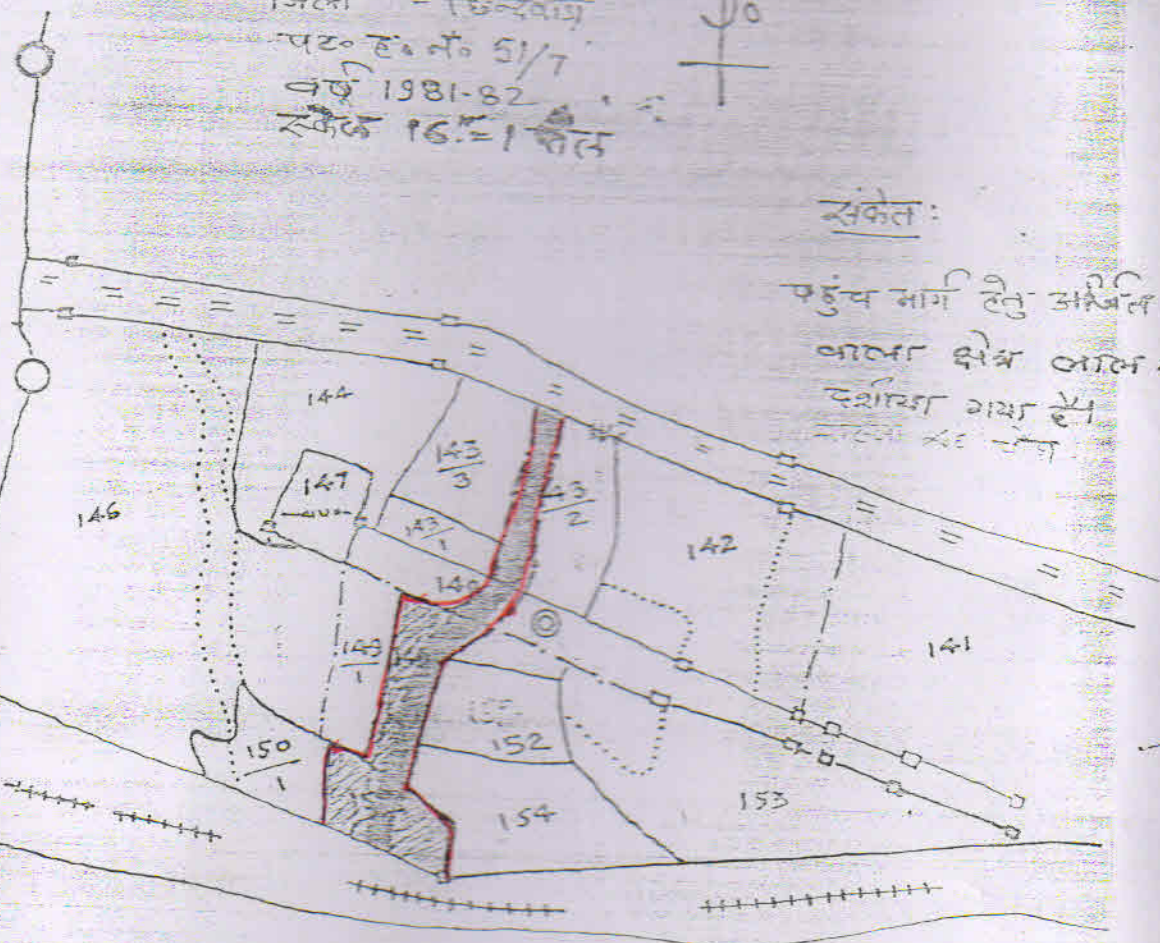 जिला - छिन्दवाड़ा
उ०
प०ह०नं० 51/7
वर्ष 1981-82
स्केल 16"=1 मील
संकेत:
पहुंच मार्ग हेतु अर्जित
वाला क्षेत्र लाल
दर्शाया गया है।
144
143/3
147
143/1
143/2
146
142
141
149/1
150/1
152
153
154